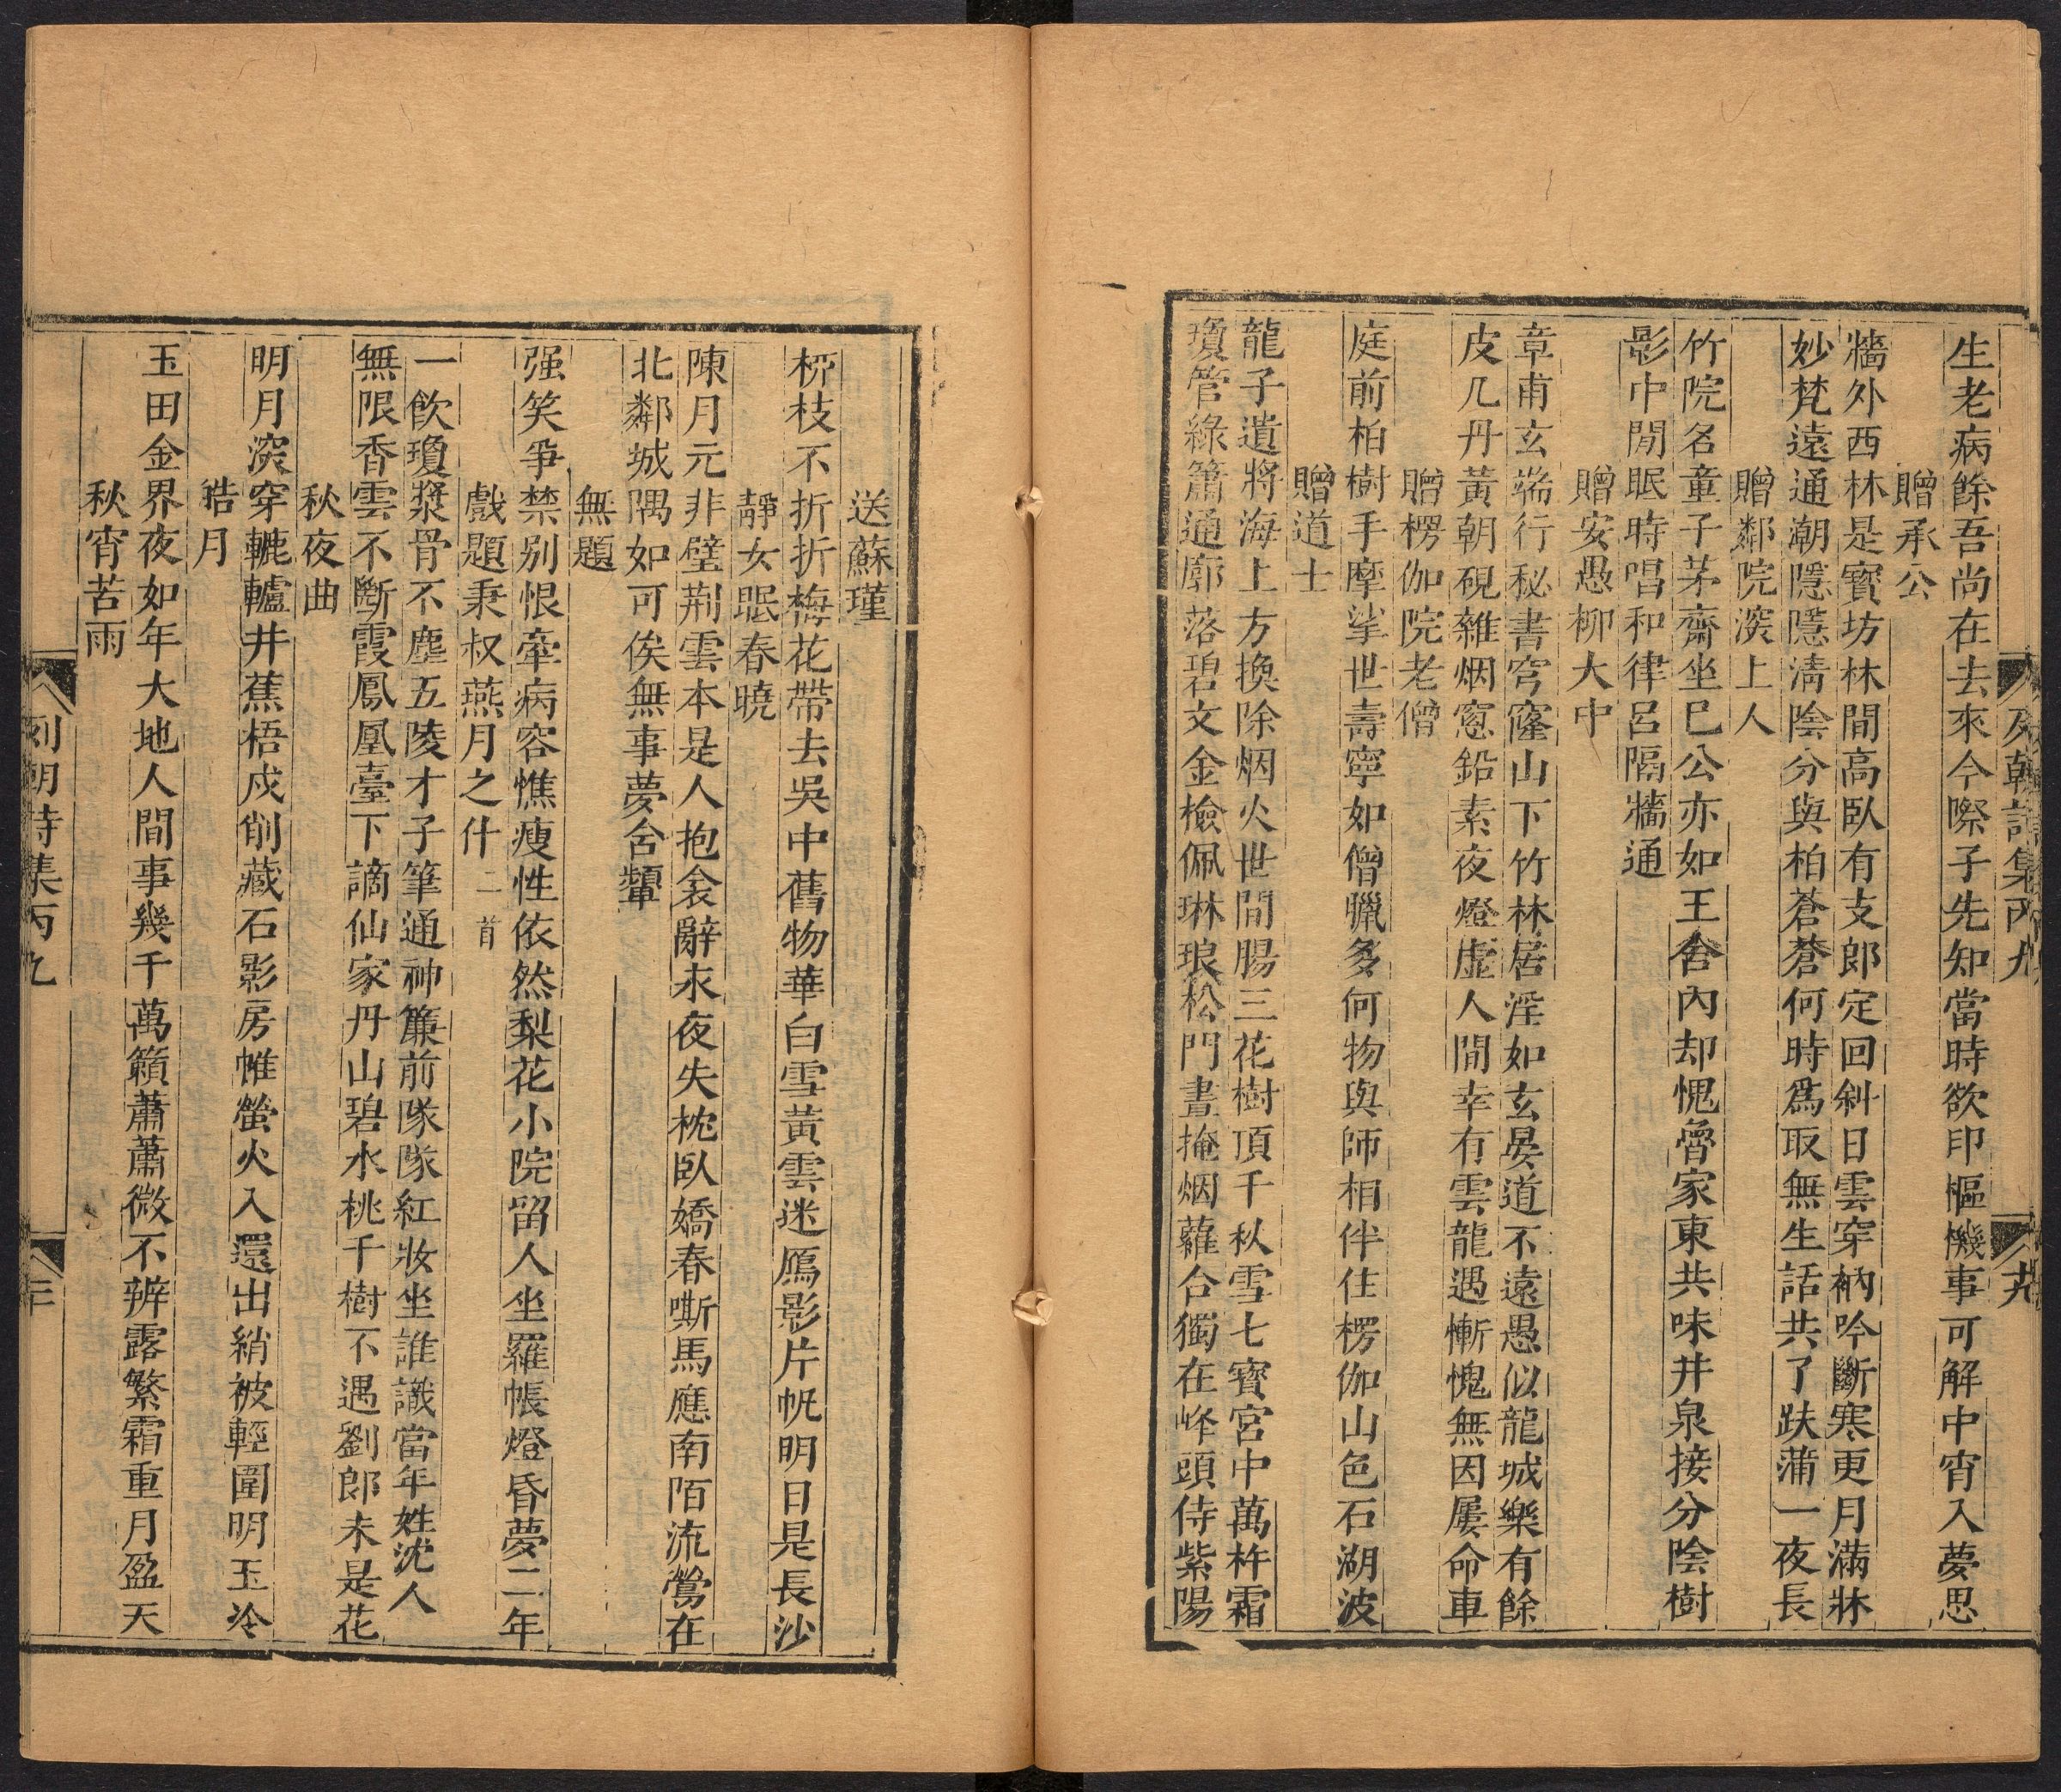 列朝詩集丙九
十九
生老病餘吾尚在去來今際子先知當時欲印樞機事可解中宵入夢思
贈承公
牆外西林是寶坊林間高臥有支郎定回斜日雲穿衲吟斷寒更月滿牀
妙梵遠通潮隱隱淸陰分與柏蒼蒼何時爲取無生話共了趺蒲一夜長
贈鄰院深上人
竹院名童子茅齋坐巳公亦如王舍內却愧魯家東共味井泉接分陰樹
影中閒眠時唱和律呂隔牆通
贈安愚柳大中
章甫玄端行秘書穹窿山下竹林居淫如玄晏道不遠愚似龍城樂有餘
皮几丹黃朝硯雜烟窓鉛素夜燈虛人間幸有雲龍遇慚愧無因屢命車
贈楞伽院老僧
庭前柏樹手摩挲世壽寧如僧臘多何物與師相伴住楞伽山色石湖波
贈道士
龍子遺將海上方換除烟火世間腸三花樹頂千秋雪七寶宮中萬杵霜
瓊管綠簫通廓落碧文金檢佩琳琅松門晝掩烟蘿合獨在峰頭侍紫陽
送蘇瑾
栁枝不折折梅花帶去吳中舊物華白雪黃雲迷鴈影片帆明日是長沙
靜女眠春曉
陳月元非璧荆雲本是人抱衾辭永夜失枕臥嬌春嘶馬應南陌流鶯在
北鄰城隅如可俟無事夢含顰
無題
强笑爭禁别恨牽病容憔瘦性依然梨花小院留人坐羅帳燈昏夢二年
戲題秉叔燕月之什二首
一飮瓊漿骨不塵五陵才子筆通神簾前隊隊紅妝坐誰識當年姓沈人
無限香雲不斷霞鳳凰臺下謫仙家丹山碧水桃千樹不遇劉郎未是花
秋夜曲
明月深穿轆轤井蕉梧戍削藏石影房帷螢火入還出綃被輕圍明玉冷
皓月
玉田金界夜如年大地人間事幾千萬籟蕭蕭微不辨露繁霜重月盈天
秋宵苦雨
列朝詩集丙九
二十